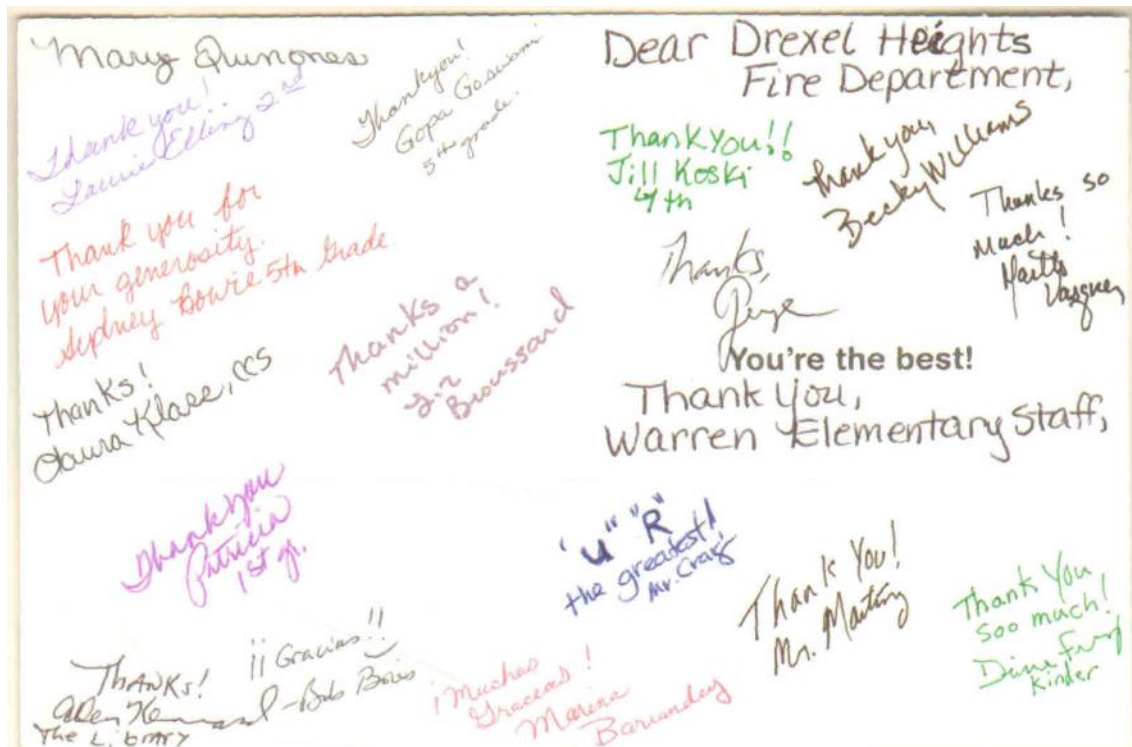 Mary Quinones
Thank you!
Laurie Elling 2nd
Thankyou!
Gopa Goswami
5th grade.
Thank you for
your generosity.
Sydney Bowie 5th Grade
Thanks!
Laura Klase, CCS
Thanks a
million!
Liz
Broussard
Thankyou
Patricia
1st gr.
THANKS!
The Library
¡¡Gracias!!
-Bob
¡Muchas
Gracias!
Marina
Dear Drexel Heights
Fire Department,
Thank You!!
Jill Koski
4th
Thank you,
Becky Williams
Thanks so
Much!
Vasquez
Thanks,
You're the best!
Thank You,
Warren Elementary Staff,
"U" "R"
the greatest!
Mr. Craig
Thank You!
Mr.
Thank You
soo much!
Kinder